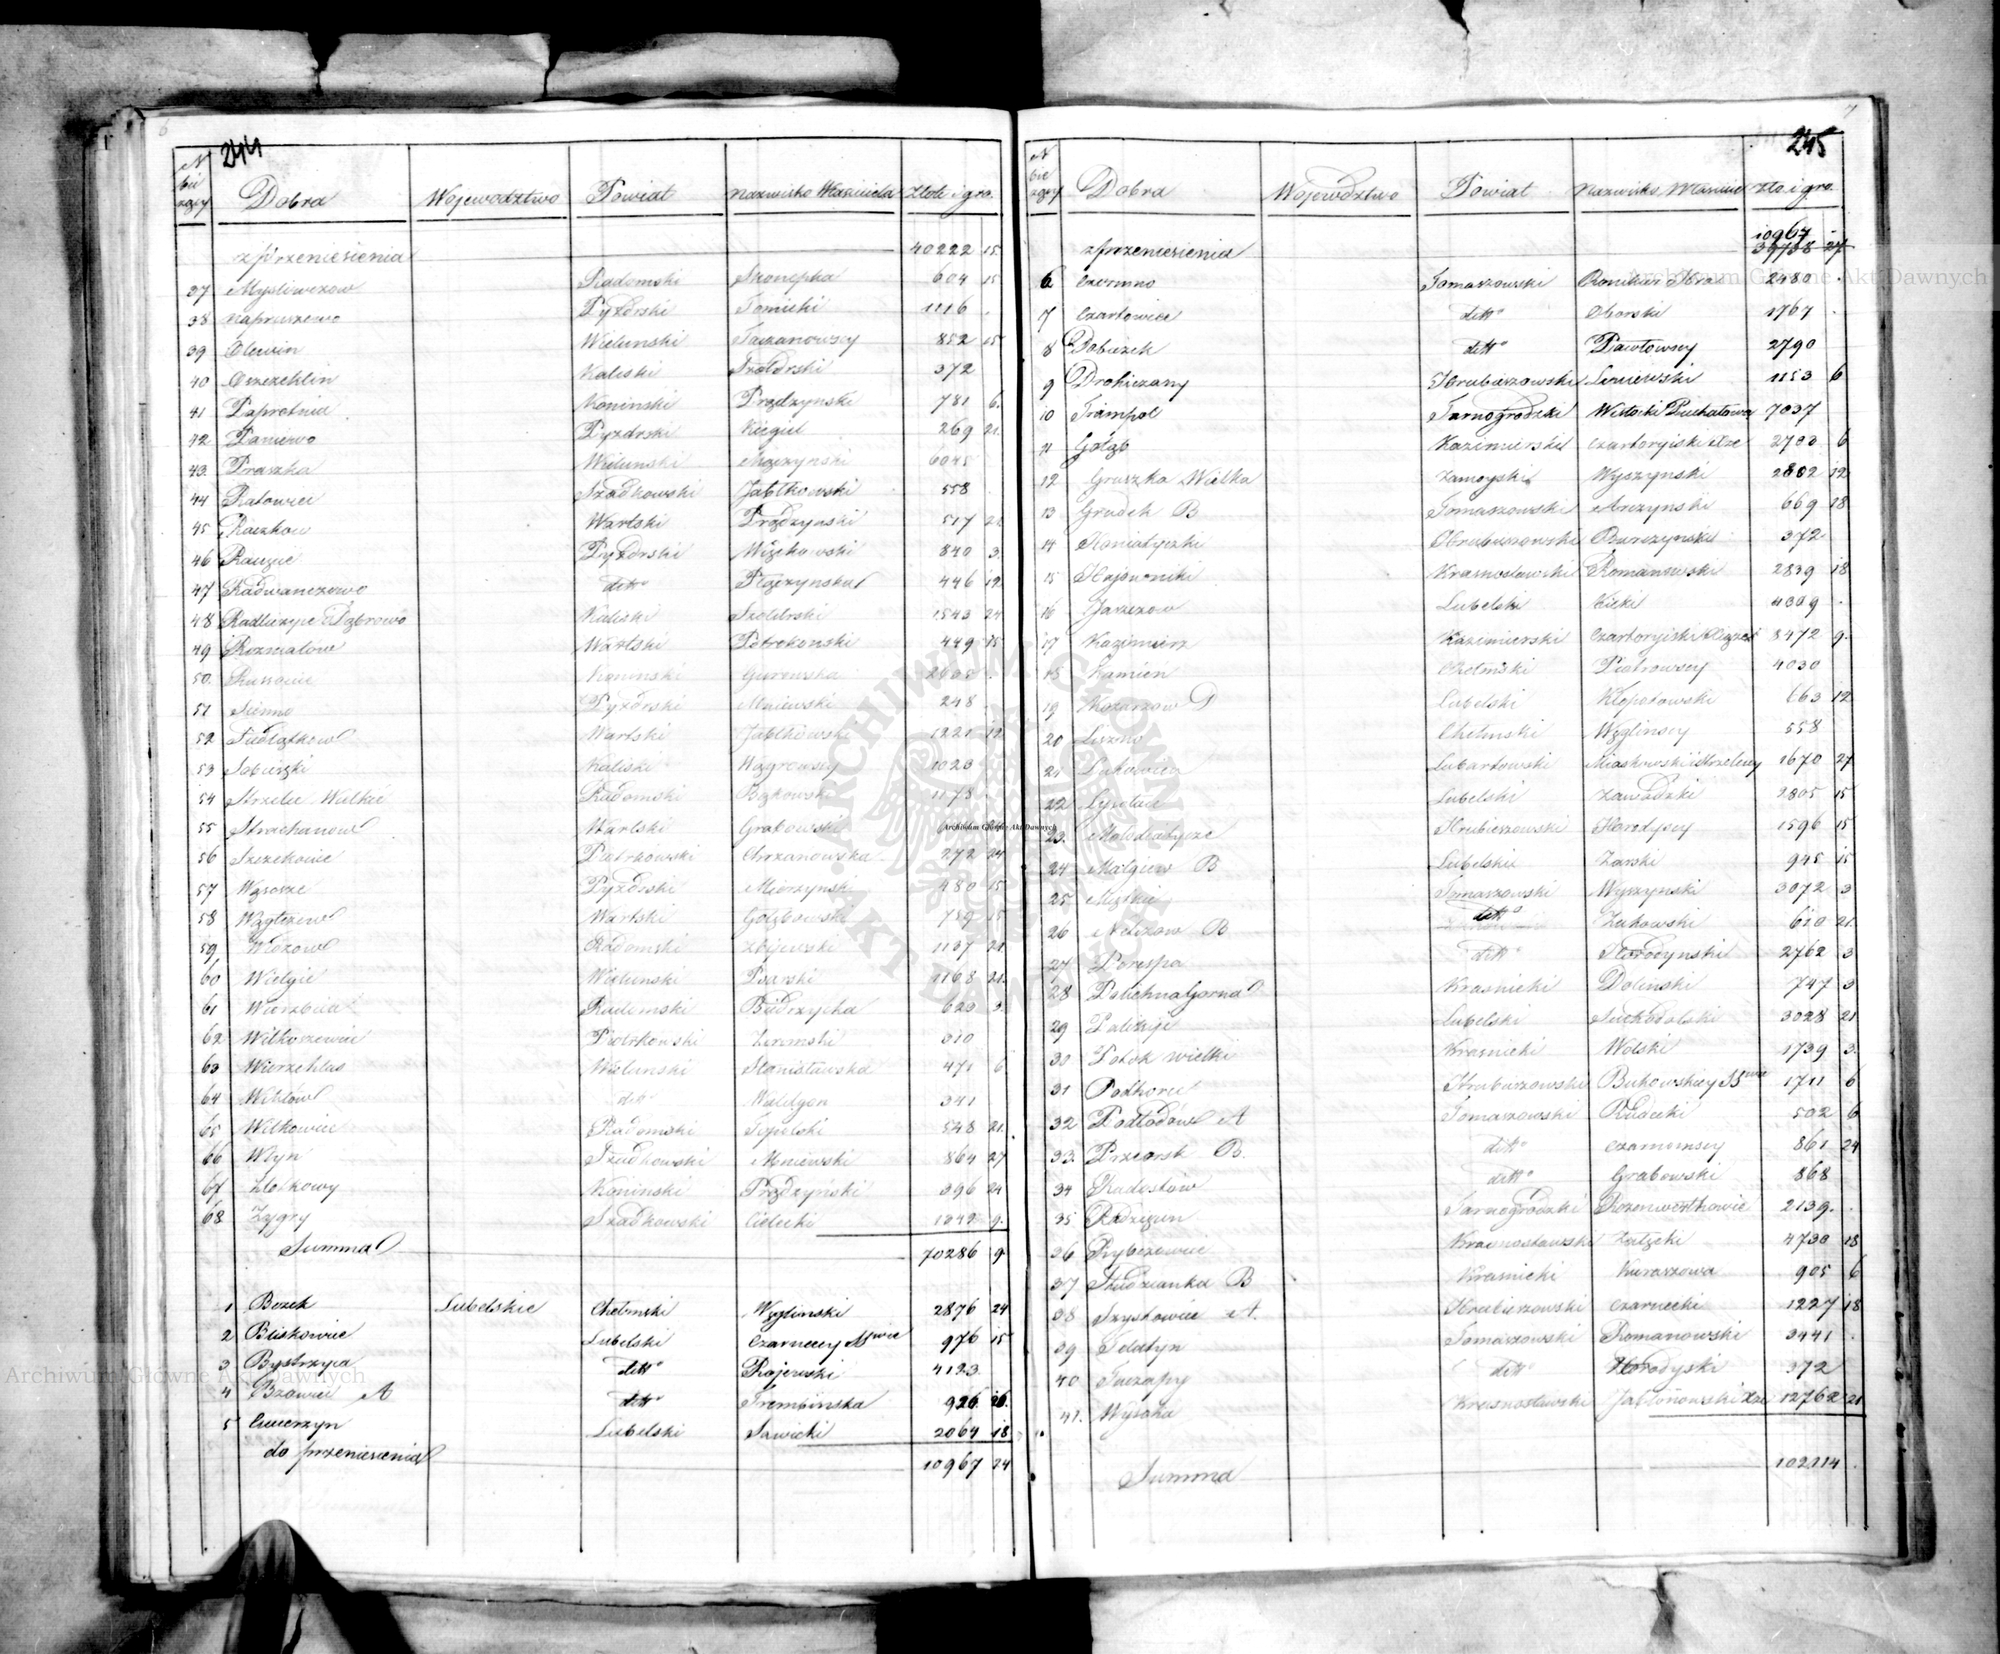 6
244
N bieżący Dobra Województwo Powiat Nazwisko Właściciela Złote i gro.
z przeniesienia 40222 15
37 Myśliwczow Radomski 604 15
38 Napruszewo Pyzdrski Tomicki 1116
39 Olewin Wieluński Taczanowscy 852 15
40 Oszczeklin Kaliski Szoldrski 372
41 Paprotnia Koninski Prądzynski 781 6
42 Paniewo Pyzdrski Kiegiel 269 21
43 Praszka Wieluński Mączynski 6045
44 Ratowice Szadkowski Jabłkowski 558
45 Raczkow Wartski Prądzynski 517 21
46 Pyzdrski 840 3
47 Radwanczewo ditto 446 12
48 Radliczyce Dąbrowo Kaliski Szoldrski 1543 24
49 Rozniatów Wartski Petrekonski 449 15
50 Russocic Koninski Gurowska
51 Sienno Pyzdrski Mniewski 248
52 Siedlątkow Wartski Jabłkowski 1221 12
53 Kaliski Węgrowscy 1023
54 Strzelce Wielkie Radomski Bąkowski 1178
55 Strachanow Wartski Grabowski
56 Szczekocice Piotrkowski Chrzanowska 272 24
57 Wąsosze Pyzdrski Mierzynski 480 15
58 Wągłczew Wartski Gołębowski 759 15
59 Widzow Radomski Zbijewski 1137 21
60 Wielgie Wieluński Psarski 1168 21
61 Wierzbica Radomski 623 3
62 Wilkoszewice Piotrkowski Ziemski 310
63 Wierzchlas Wieluński Stanisławska 471 6
64 Wichłów dito Waldgon 341
65 Witkowice Radomski Topolski 548 21
66 Włyń Szadkowski Mniewski 864 27
67 Złotkowy Koninski Prądzyński 396 24
68 Zygry Szadkowski Cielecki 1342 9
Summa 70286 9
1 Bezek Lubelskie Chełmski Węglinski 2876 24
2 Bliskowice Lubelski Czarneccy 976 15
3 Bystrzyca ditto Rojewski 4123
4 Bzowiec A ditto Trembinska 926
5 Ciecierzyn Lubelski Sawicki 2064 18
do przeniesienia 10967 24
7
245
N bieżący Dobra Województwo Powiat Nazwisko Właścicie Złto. i gro.
10967
z przeniesienia 39738 27
6 Czermno Tomaszowski Ronikier Hra 2480
7 Czartowice ditto Oborski 1767
8 Dobużek ditto Pawłowscy 2790
9 Drohiczany Hrubieszowski Leniewski 1153 6
10 Frampol Tarnogrodzki Wisłocki Puchałowa 7037
11 Gołąb Kazimierski Czartoryiski Xże 2703 6
12 Gruszka Wielka Zamoyski Wyszynski 2802 12
13 Grudek B Tomaszowski 669 18
14 Honiatyczki Hrubieszowski Burczyński 372
15 Hajowniki Krasnostawski Romanowski 2839 18
16 Jaszczow Lubelski Kicki 4309
17 Kazimierz Kazimierski Czartoryiski 8472 9
18 Kamień Chełmski Piotrowscy 4030
19 Kozarzow Lubelski Kłopotowski 663 12
20 Chełmski Węglinscy 558
21 Łukowiec Lubartowski Miaskowski i Strzelecy 1670 27
22 Łysołaje Lubelski Zawadzki 2805 15
23 Malodiatycze Hrubieszowski Horodyscy 1596 15
24 Małgiew B Lubelski Żarski 945 15
25 Miętkie Tomaszowski Wyszynski 3072 3
26 Nelizow B ditto Żukowski 610 21
27 Porespa ditto Starodynski 2762 3
28 Polichna Gorna Krasnicki Dolinski 747 3
29 Palikije Lubelski Suchodolski 3028 21
30 Potok wielki Krasnicki Wolski 1739 3
31 Podhorce Hrubieszowski Bukowskiey SSwie 1711 6
32 Podlodów A Tomaszowski Rudecki 502 6
33 Przeorsk B. ditto Czarneccy 861 24
34 Radostów ditto Grabowski 868
35 Radzięcin Tarnogrodzki Rozenwerthowie 2139
36 Rybczewice Krasnostawski Załęcki 4730 18
37 Studzianka B Krasnicki Kuraszowa 905 6
38 Szystowice A. Hrubieszowski Czarnecki 1227 18
39 Telatyn Tomaszowski Romanowski 3441
40 Tuczapy ditto Horodyski 372
41. Wysokie Krasnostawski Jabłonowski Xże 12762 21
Summa 102114
Archiwum Główne Akt Dawnych
Archiwum Główne Akt Dawnych
Archiwum Główne Akt Dawnych
ARCHIWUM GŁÓWNE AKT DAWNYCH